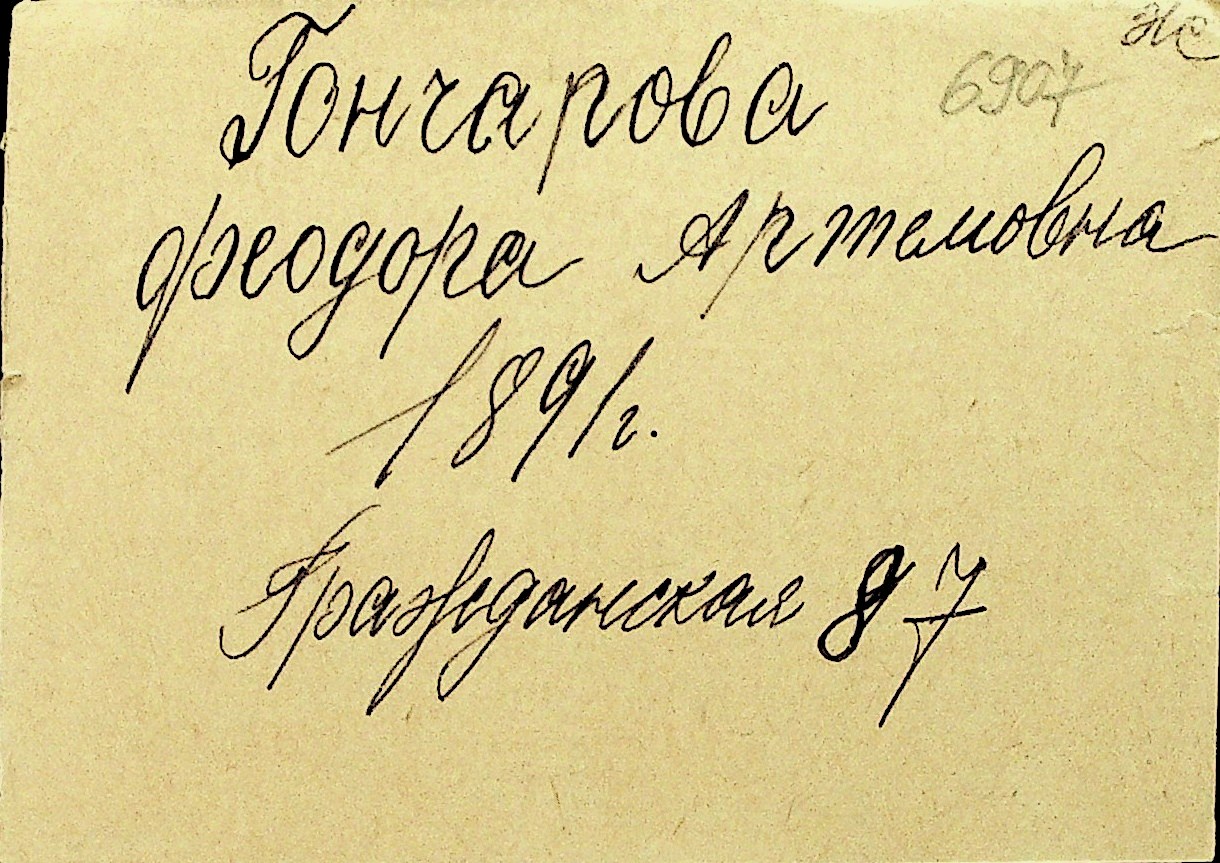 Гончарова
6907
феодора Артемовна
1891г.
Гражданская 87